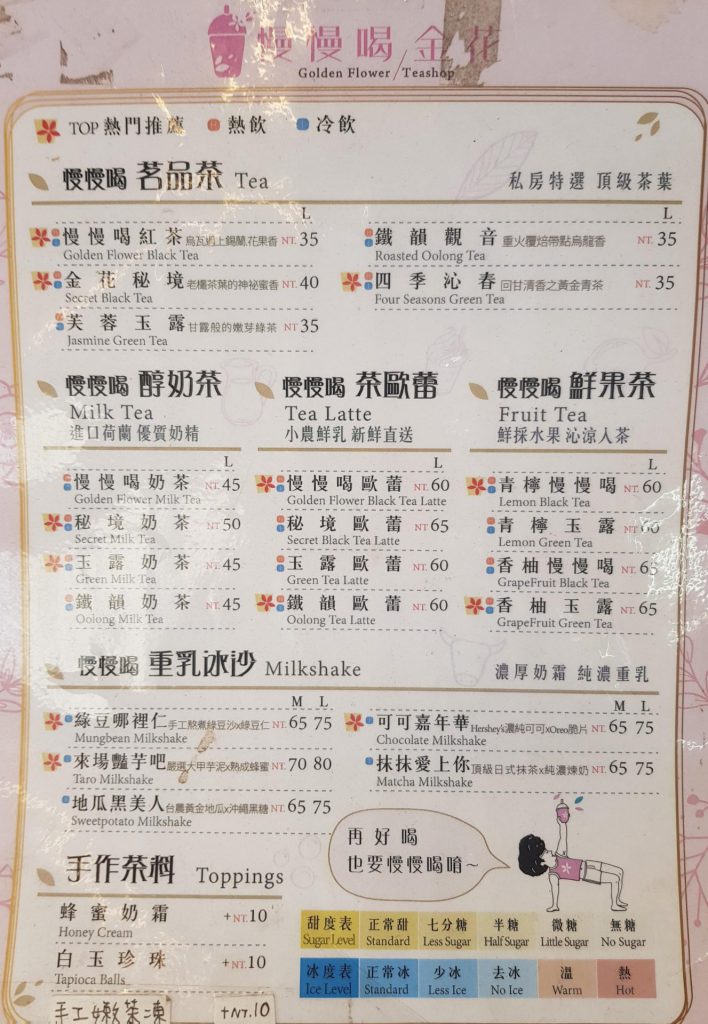 慢慢喝金花
Golden Flower / Teashop
TOP 熱門推薦 熱飲 冷飲
慢慢喝 茗品茶 Tea 私房特選 頂級茶葉
L
慢慢喝紅茶 烏瓦遇上錫蘭,花果香 NT. 35
Golden Flower Black Tea
金花秘境 老欉茶葉的神祕蜜香 NT. 40
Secret Black Tea
芙蓉玉露 甘露般的嫩芽綠茶 NT. 35
Jasmine Green Tea
L
鐵韻觀音 重火覆焙帶點烏龍香 NT. 35
Roasted Oolong Tea
四季沁春 回甘清香之黃金青茶 NT. 35
Four Seasons Green Tea
慢慢喝 醇奶茶
Milk Tea
進口荷蘭 優質奶精
L
慢慢喝奶茶 NT. 45
Golden Flower Milk Tea
秘境奶茶 NT. 50
Secret Milk Tea
玉露奶茶 NT. 45
Green Milk Tea
鐵韻奶茶 NT. 45
Oolong Milk Tea
慢慢喝 茶歐蕾
Tea Latte
小農鮮乳 新鮮直送
L
慢慢喝歐蕾 NT. 60
Golden Flower Black Tea Latte
秘境歐蕾 NT. 65
Secret Black Tea Latte
玉露歐蕾 NT. 60
Green Tea Latte
鐵韻歐蕾 NT. 60
Oolong Tea Latte
慢慢喝 鮮果茶
Fruit Tea
鮮採水果 沁涼人茶
L
青檸慢慢喝 NT. 60
Lemon Black Tea
青檸玉露 NT. 60
Lemon Green Tea
香柚慢慢喝 NT. 65
GrapeFruit Black Tea
香柚玉露 NT. 65
GrapeFruit Green Tea
慢慢喝 重乳冰沙 Milkshake 濃厚奶霜 純濃重乳
M L
綠豆哪裡仁 手工熬煮綠豆沙x綠豆仁 NT. 65 75
Mungbean Milkshake
來場豔芋吧 嚴選大甲芋泥x熟成蜂蜜 NT. 70 80
Taro Milkshake
地瓜黑美人 台農黃金地瓜x沖繩黑糖 NT. 65 75
Sweetpotato Milkshake
M L
可可嘉年華 Hershey's濃純可可xOreo脆片 NT. 65 75
Chocolate Milkshake
抹抹愛上你 頂級日式抹茶x純濃煉奶 NT. 65 75
Matcha Milkshake
再好喝
也要慢慢喝唷~
手作茶料 Toppings
蜂蜜奶霜 +NT.10
Honey Cream
白玉珍珠 +NT.10
Tapioca Balls
手工嫩茶凍 +NT.10
甜度表 正常甜 七分糖 半糖 微糖 無糖
Sugar Level Standard Less Sugar Half Sugar Little Sugar No Sugar
冰度表 正常冰 少冰 去冰 溫 熱
Ice Level Standard Less Ice No Ice Warm Hot